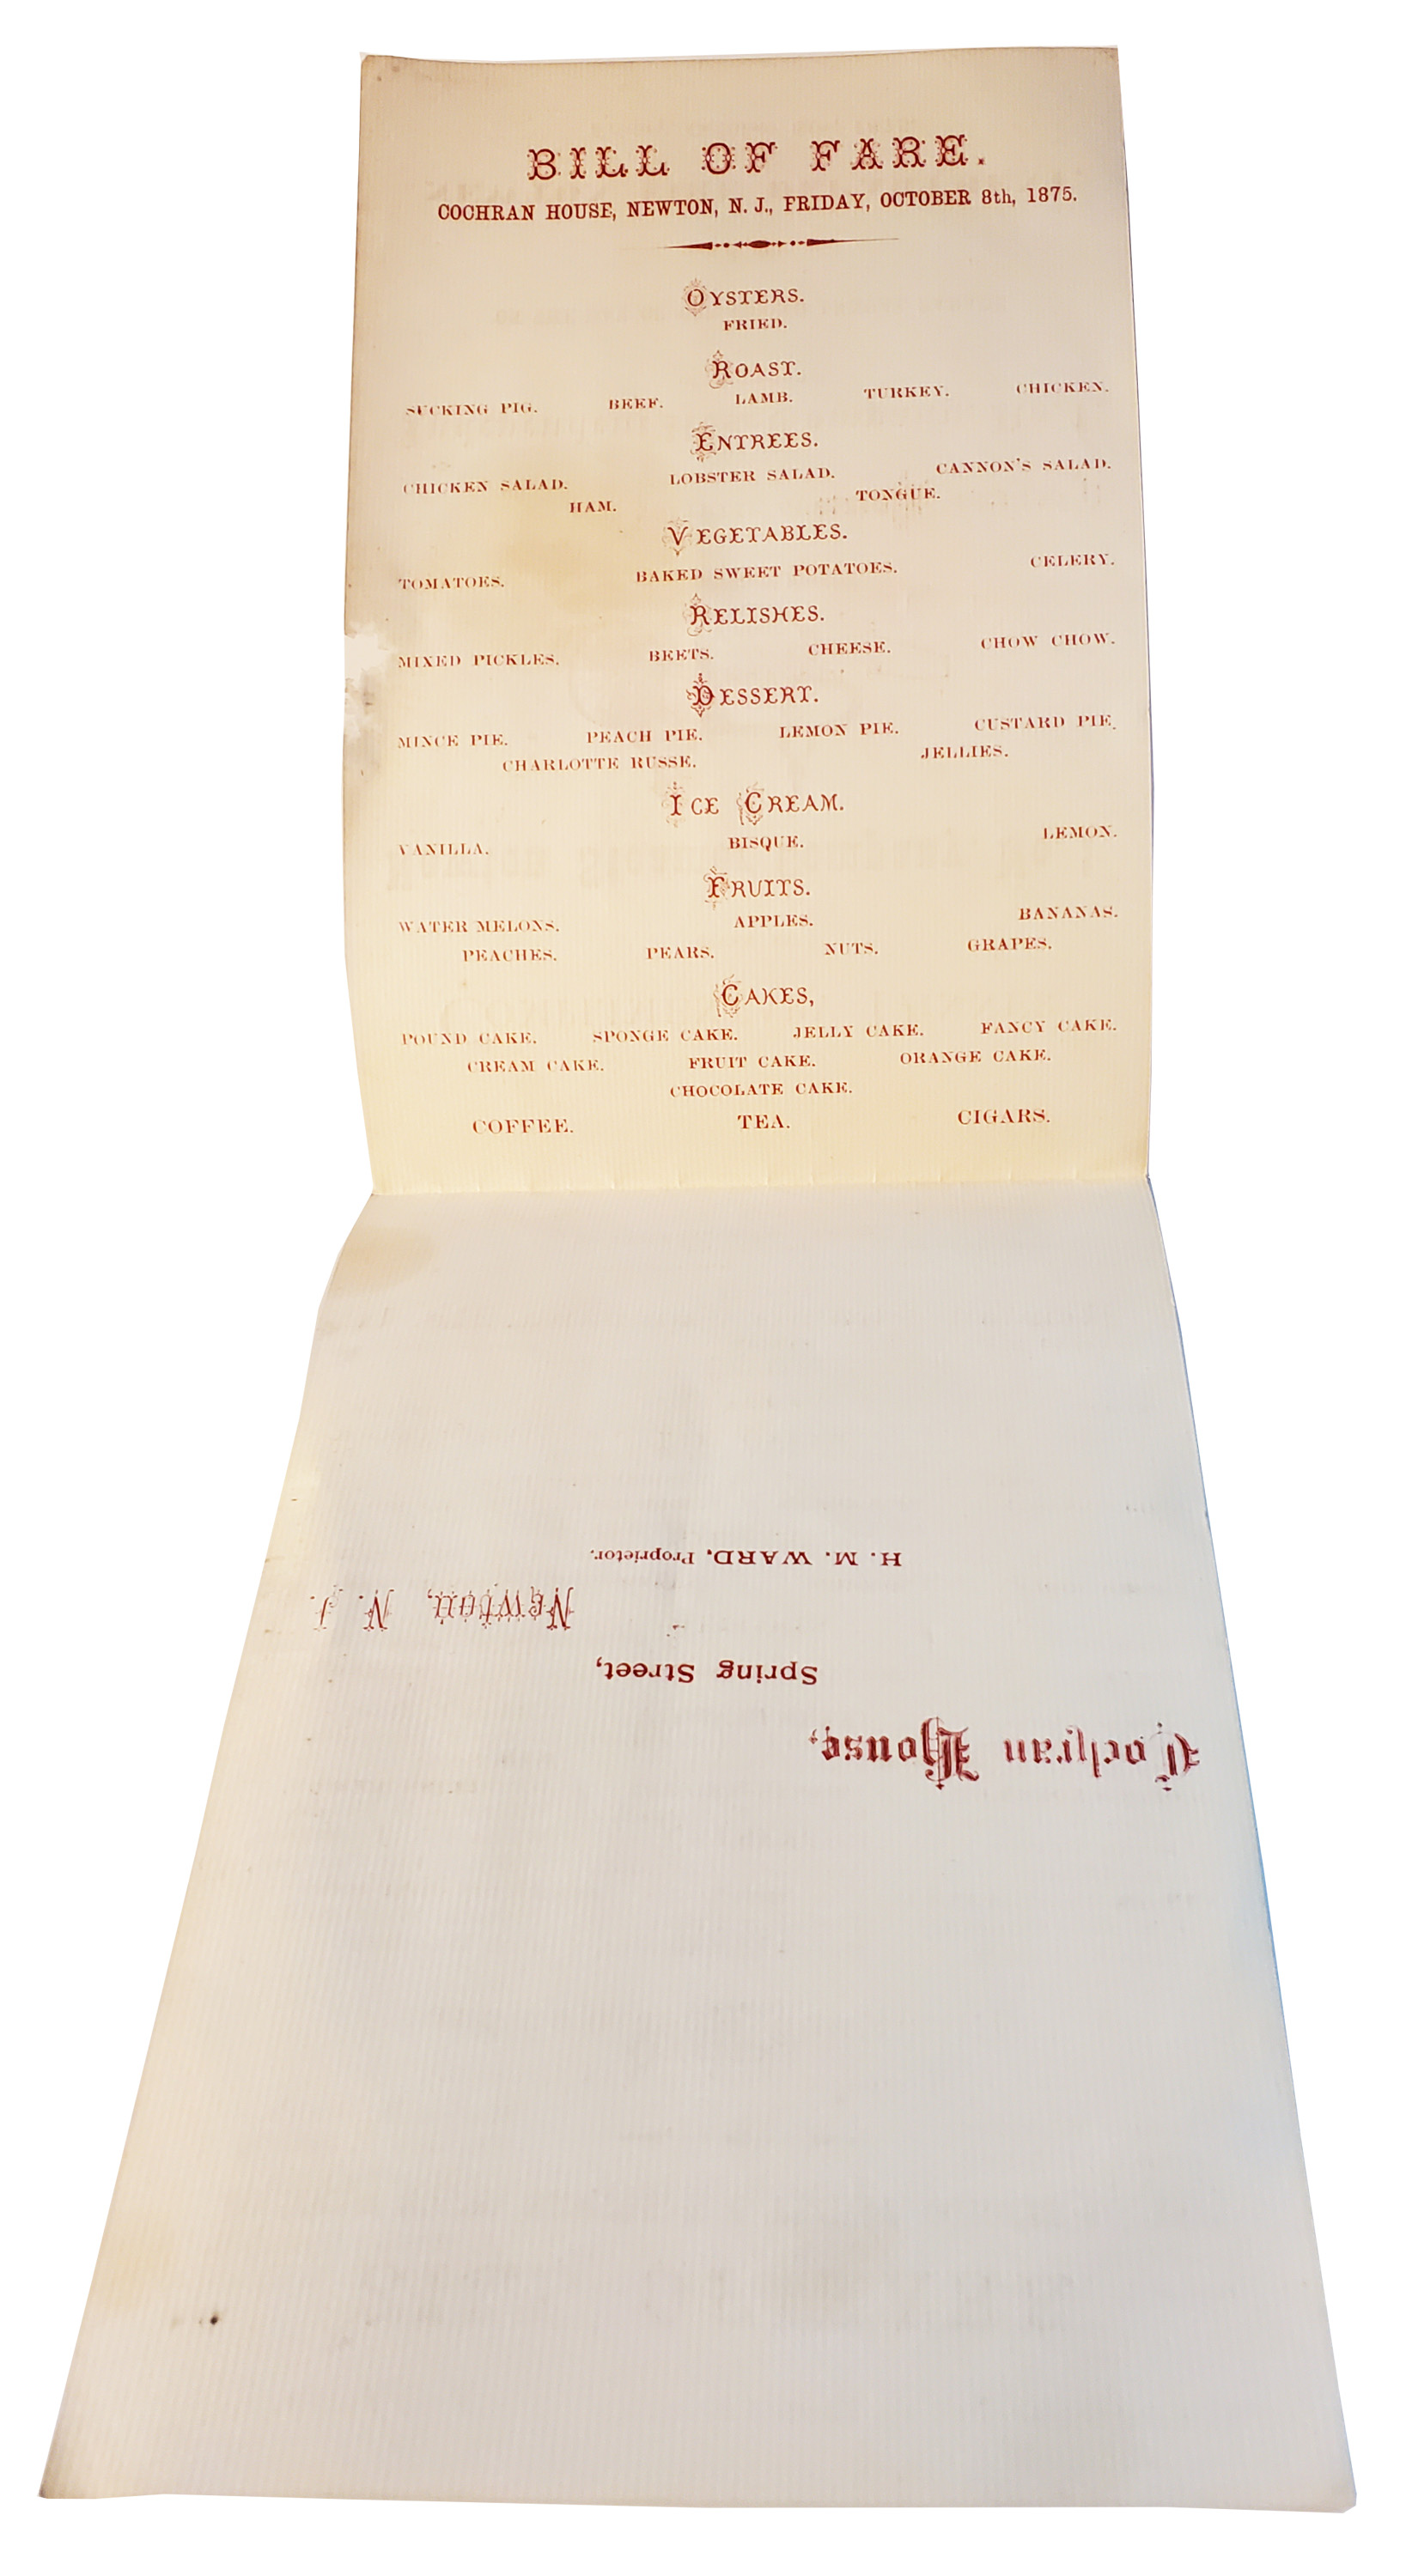 BILL OF FARE.
COCHRAN HOUSE, NEWTON, N. J., FRIDAY, OCTOBER 8th, 1875.
OYSTERS.
FRIED.
ROAST.
SUCKING PIG. BEEF. LAMB. TURKEY. CHICKEN.
ENTREES.
CHICKEN SALAD. LOBSTER SALAD. CANNON'S SALAD.
HAM. TONGUE.
VEGETABLES.
TOMATOES. BAKED SWEET POTATOES. CELERY.
RELISHES.
MIXED PICKLES. BEETS. CHEESE. CHOW CHOW.
DESSERT.
MINCE PIE. PEACH PIE. LEMON PIE. CUSTARD PIE.
CHARLOTTE RUSSE. JELLIES.
ICE CREAM.
VANILLA. BISQUE. LEMON.
FRUITS.
WATER MELONS. APPLES. BANANAS.
PEACHES. PEARS. NUTS. GRAPES.
CAKES,
POUND CAKE. SPONGE CAKE. JELLY CAKE. FANCY CAKE.
CREAM CAKE. FRUIT CAKE. ORANGE CAKE.
CHOCOLATE CAKE.
COFFEE. TEA. CIGARS.
Cochran House,
Spring Street,
Newton, N. J.
H. M. WARD, Proprietor.